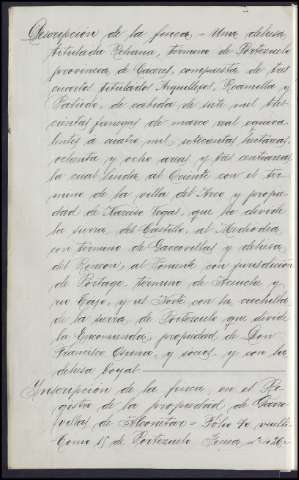 Descripción de la finca.- Una dehesa
titulada Rehana, término de Portezuelo
provincia de Cáceres, compuesta de tres
cuartos titulados Arquillejos, Ramilla y
Patiido, de cabida de siete mil
cientas fanegas de marco real equiva-
lentes a cuatro mil, setecientas hectáreas
ochenta y ocho areas y tres centiareas
la cual linda al Oriente con el tér-
mino de la villa del Arco y propie-
dad de Narciso Vegas, que la divide
la sierra del Castillo, al Mediodia
con término de Garrovillas y dehesa
del Rincon, al Poniente con jurisdicción
de Portage, término de Aceuche y
su Tajo, y al Norte con la cuchilla
de la sierra de Portezuelo que divide
la Encomienda, propiedad de Don
Francisco y socios, y con la
dehesa boyal
Inscripción de la finca en el Re-
gistro de la propiedad de Garro-
villas de Alconetar - Folio 40 vuelto
tomo 15 de Portezuelo finca